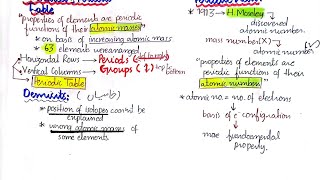 Table
"properties of elements are periodic
functions of their atomic masses"
* on basis of increasing atomic mass
* 63 elements were arranged
Horizontal Rows → Periods
Vertical Columns → Groups (↓) top to bottom
Periodic Table
Demerits:
* position of isotopes can't be
explained
* wrong atomic masses of
some elements
* 1913 → H. Moseley
discovered
atomic number
mass number (X) → atomic number (✓)
"properties of elements are
periodic functions of their
atomic number"
* atomic no. = no. of electrons
basis of e⁻ configration
more fundamental
property.